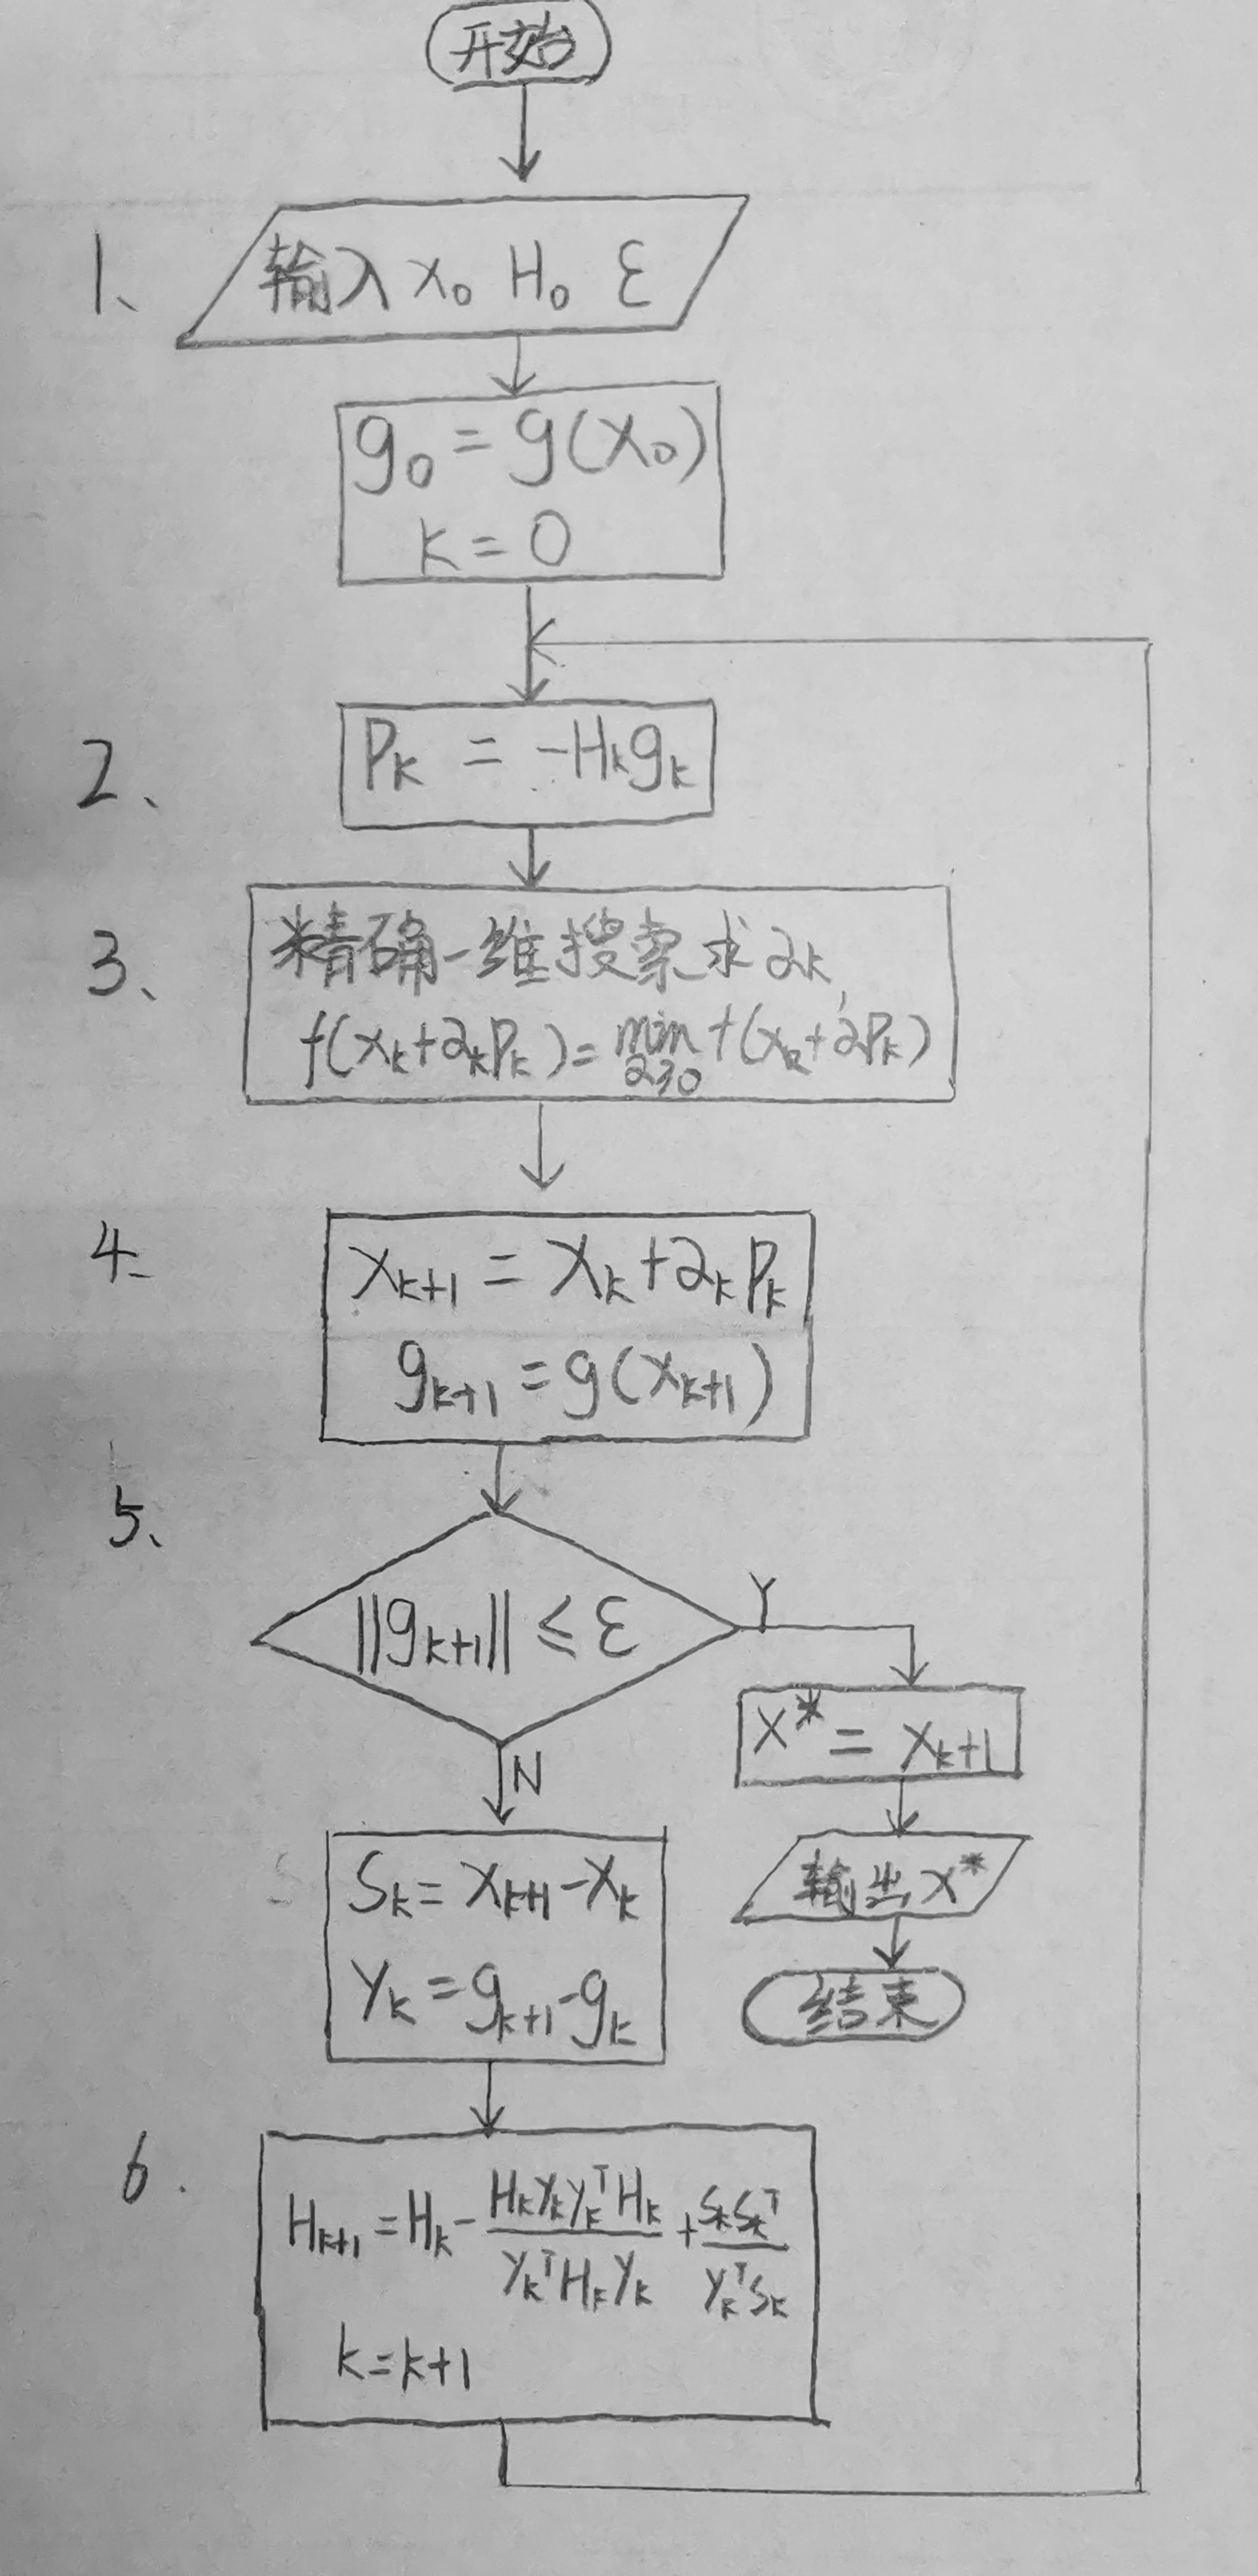 开始
1、
输入 x₀ H₀ ε
g₀ = g(x₀)
k = 0
2、
Pₖ = -Hₖgₖ
3、
精确一维搜索求 αₖ,
f(xₖ+αₖPₖ) = min f(xₖ+αPₖ)
α≥0
4、
xₖ₊₁ = xₖ+αₖPₖ
gₖ₊₁ = g(xₖ₊₁)
5、
||gₖ₊₁|| ≤ ε
Y
x* = xₖ₊₁
N
输出 x*
结束
Sₖ = xₖ₊₁-xₖ
yₖ = gₖ₊₁-gₖ
6.
Hₖ₊₁ = Hₖ - HₖyₖyₖᵀHₖ / yₖᵀHₖyₖ + SₖSₖᵀ / yₖᵀSₖ
k = k+1